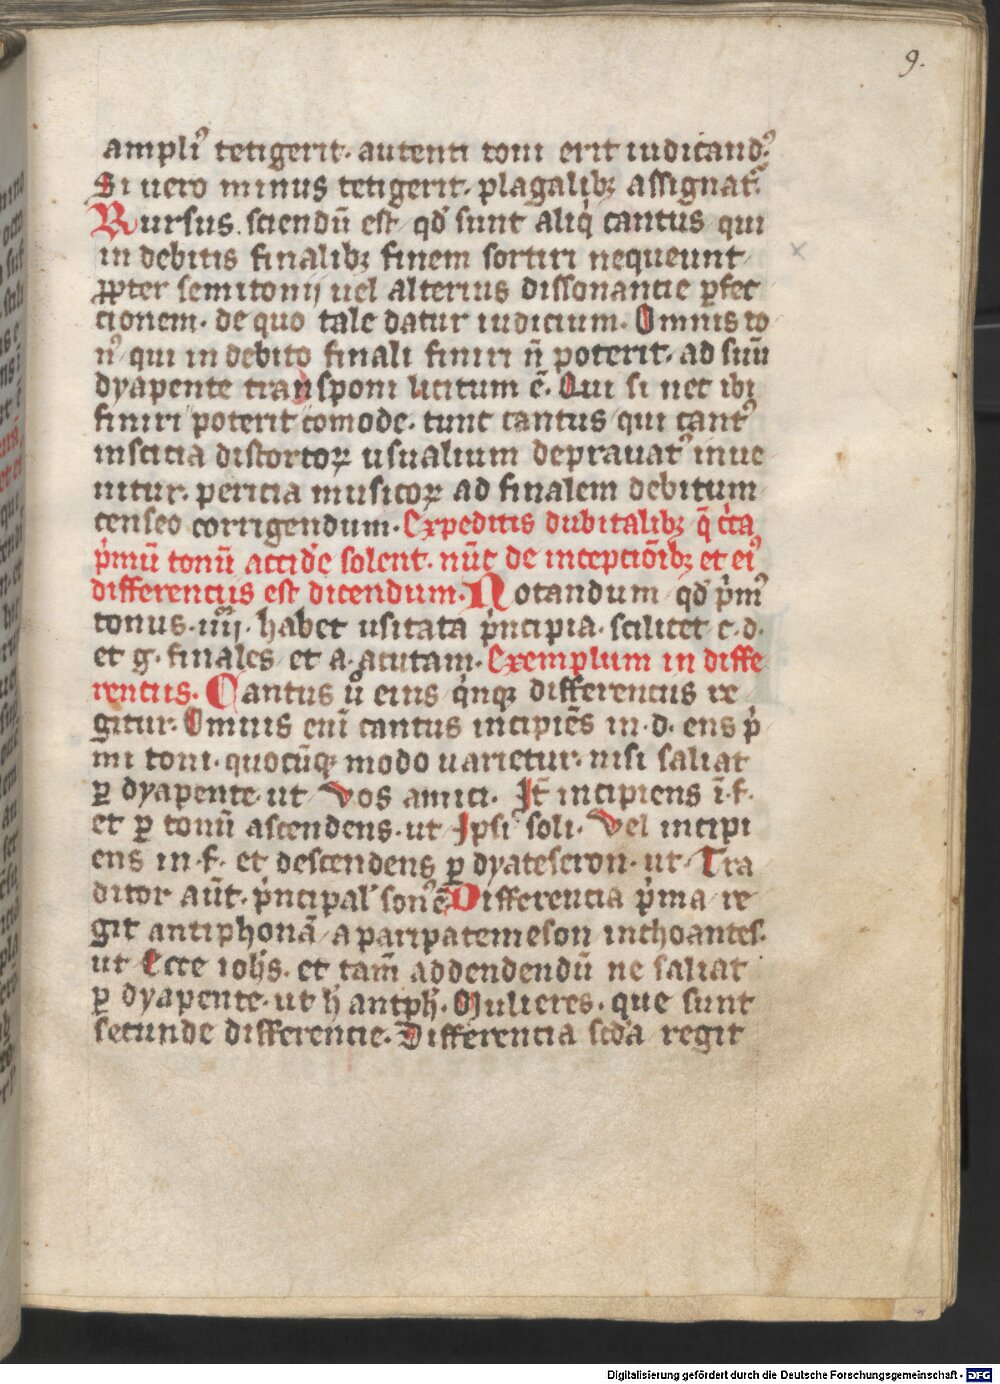 9.
ampliꝰ tetigerit. autenti toni erit iudicandꝰ.
Si uero minus tetigerit. plagalibꝫ assignat᷑.
Rursus sciendū est qđ sunt aliq̇ cantus qui
in debitis finalibꝫ finem sortiri nequeunt
ꝓpter semitonij uel alterius dissonancie ꝑfec
cionem. de quo tale datur iudicium. Omnis to
nꝰ qui in debito finali finiri n̄ poterit. ad suū
dyapente transponi licitum ē. Qui si nec ibi
finiri poterit comode. tunc cantus qui cantꝰ
inscicia distortoꝝ usualium deprauatꝰ inue
nitur. pericia musicoꝝ ad finalem debitum
censeo corrigendum. Expeditis dubitalibꝫ q̄ cc̄a
p̄mū tonū accidē solent. nūc de incepcōībꝫ et eiꝰ
differenciis est dicendum. Notandum qđ p̄mꝰ
tonus. iiij. habet usitata p̄ncipia. scilicet c. d.
et g. finales et a. acutam. Exemplum in diffe
renciis. Cantus ū eius q̇nqꝫ differenciis re
gitur. Omnis eni̅ cantus incipiēs in. d. ens p̄
mi toni. quocūqꝫ modo uarietur. nisi saliat
ꝑ dyapente. ut Vos amici. It̄ incipiens ī. f.
et ꝑ tonū ascendens. ut Ipsi soli. Vel incipi
ens in. f. et descendens ꝑ dyateseron. ut Tra
ditor aūt. p̄ncipalꝰ sonꝰ ē Differencia p̄ma re
git antiphonā a paripatemeson inchoantes.
ut Ecce ioh̄s. et tam̄ addendendū ne saliat
ꝑ dyapente. ut h̄ antph̄. Mulieres. que sunt
secunde differencie. Differencia scd̄a regit
Digitalisierung gefördert durch die Deutsche Forschungsgemeinschaft - DFG